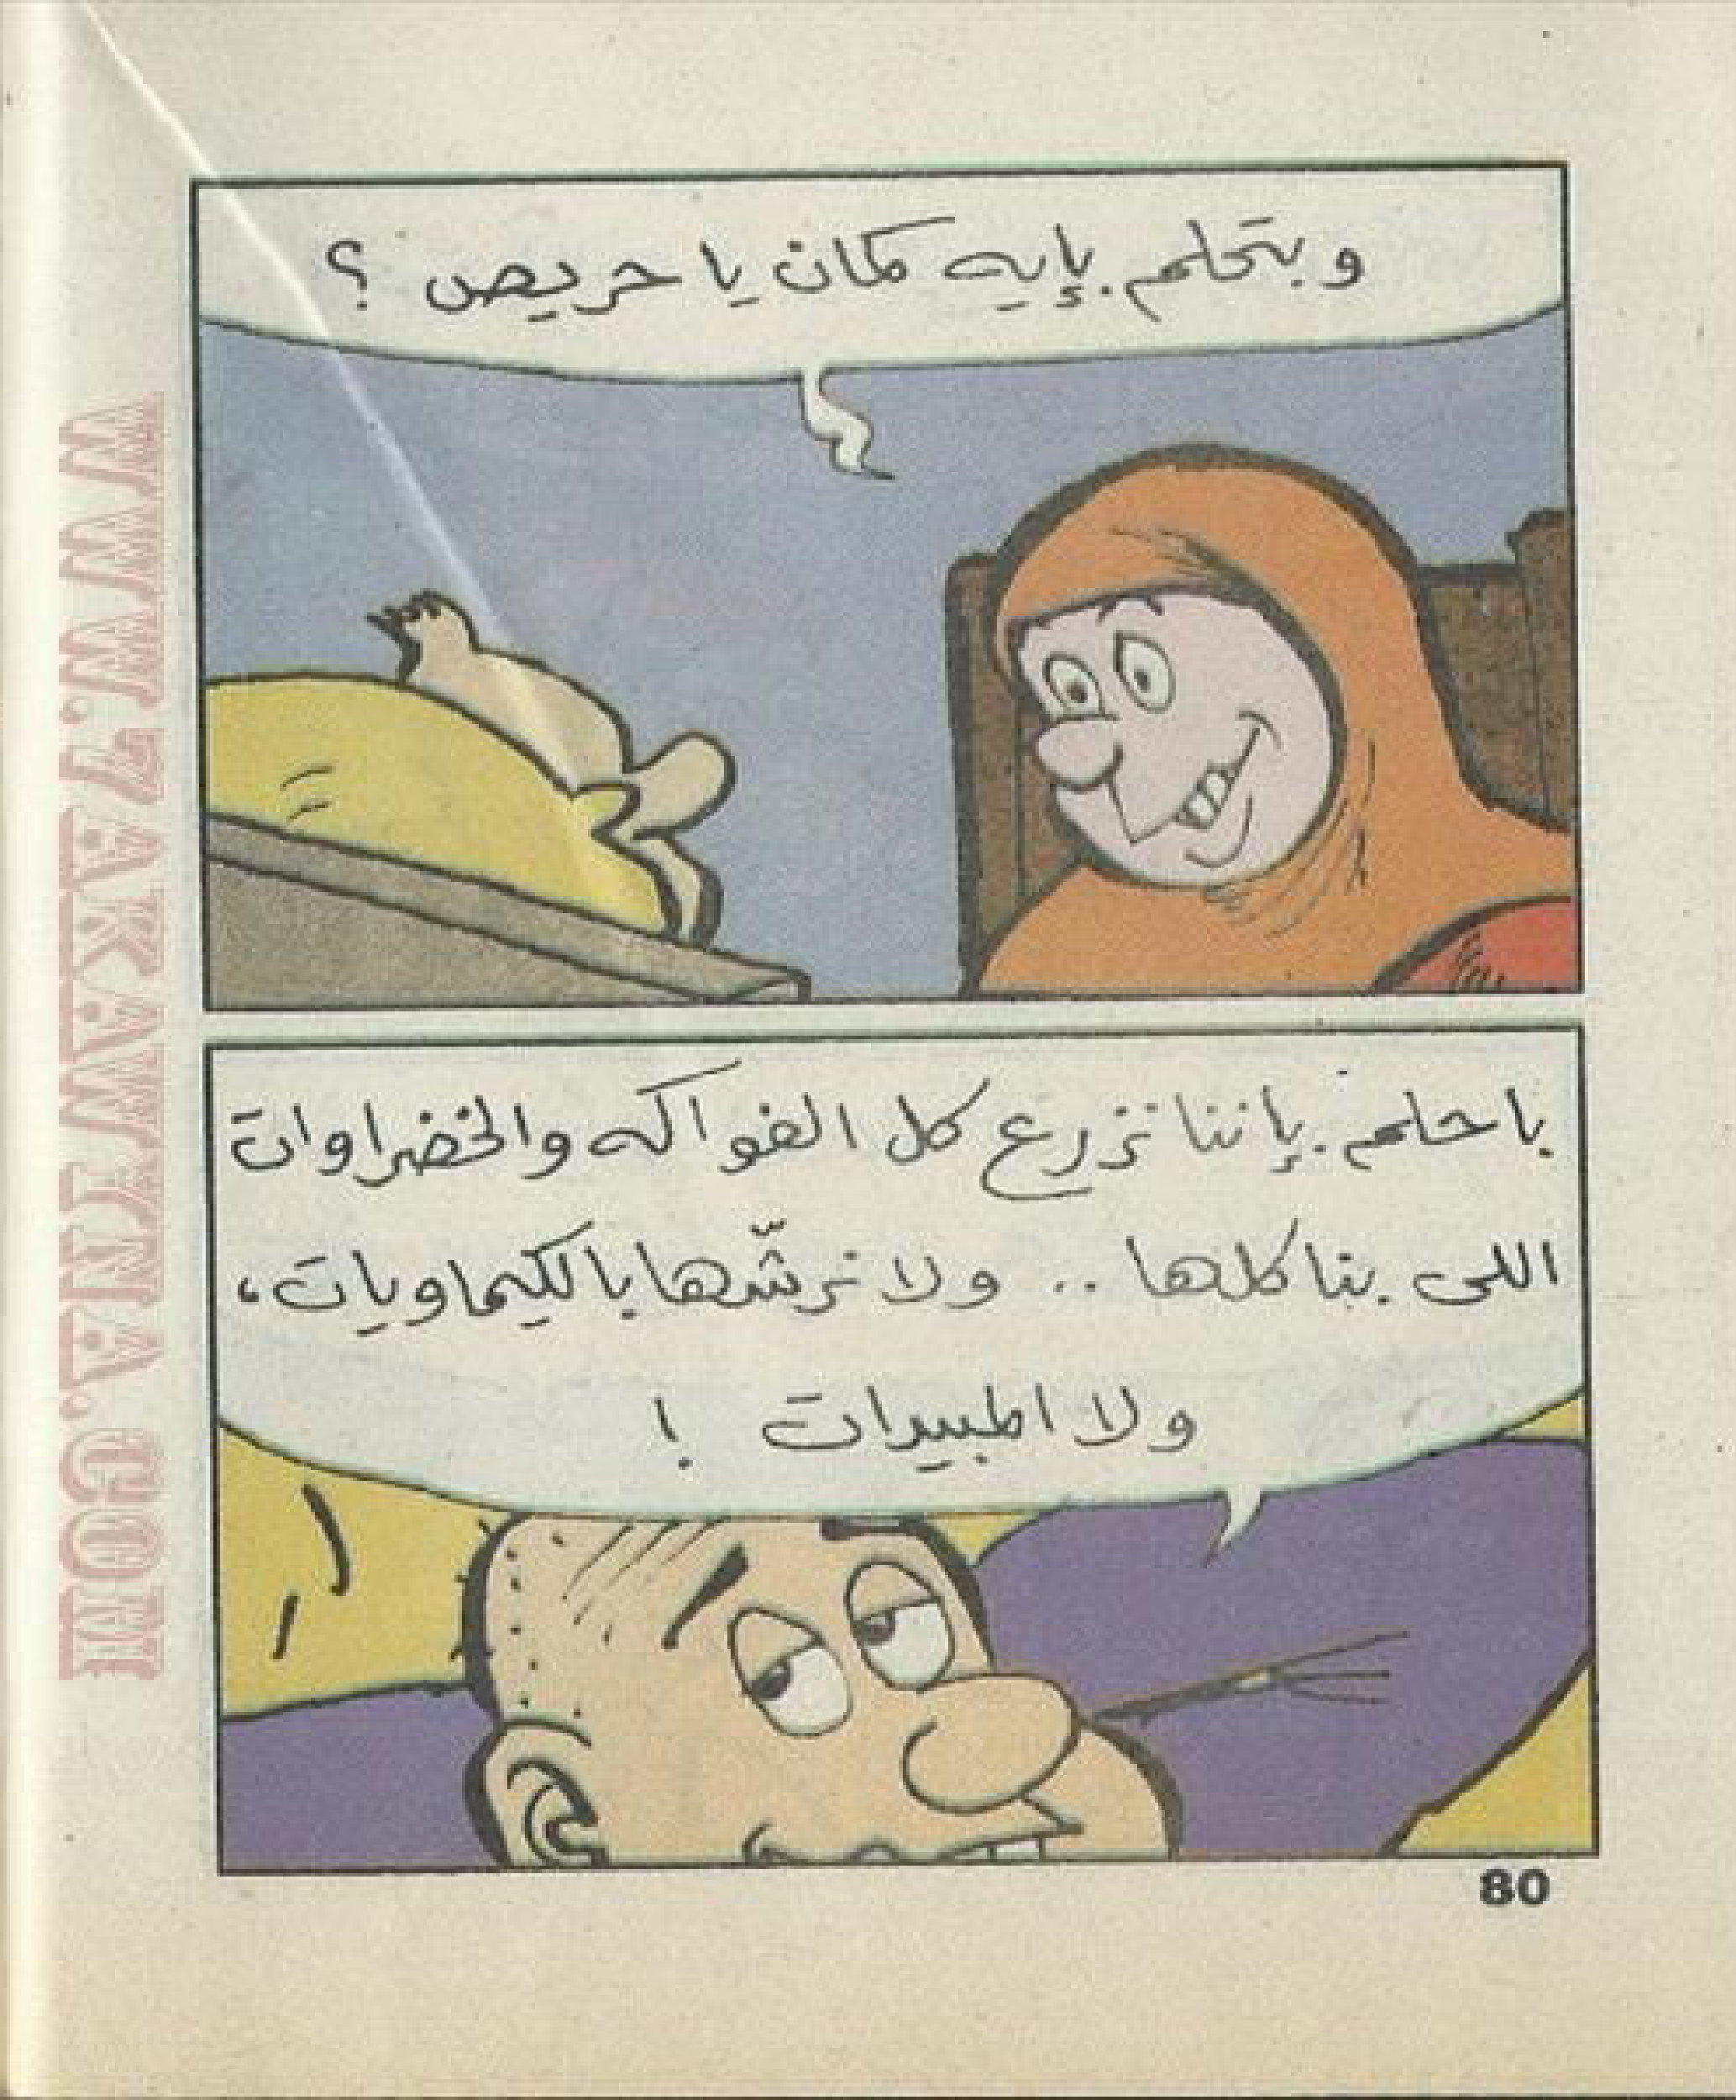 وبتحلم بإيه كمان يا حريص ؟
باحلم بإننا نزرع كل الفواكه والخضراوات
اللى بناكلها .. ولا نرشّها بالكيماويات،
ولا المبيدات !
80
WWW.7AKAWITNA.COM